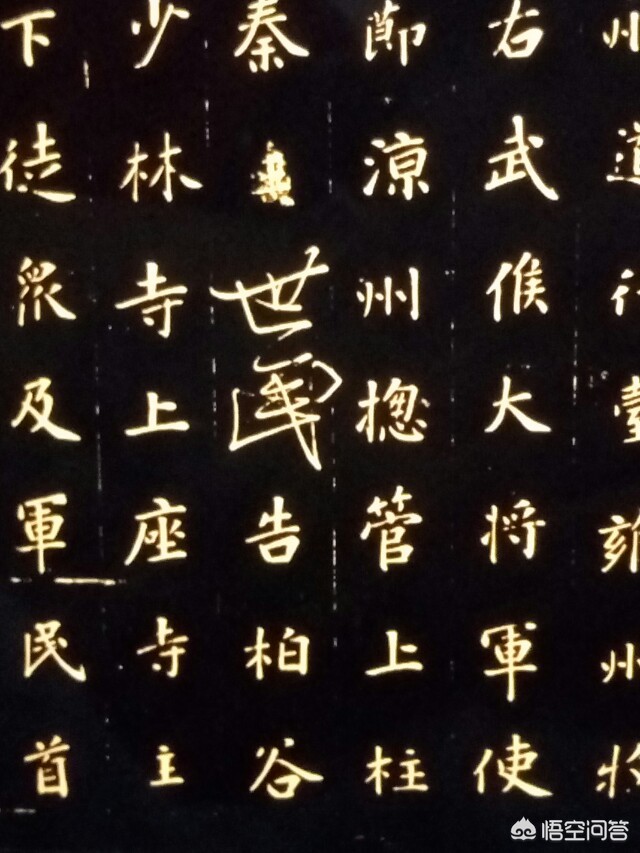 州道行臺雍州
右武候大将軍使
節涼州揔管上柱
秦世民告柏谷
少林寺上座寺主
下徒衆及軍民首
悟空问答